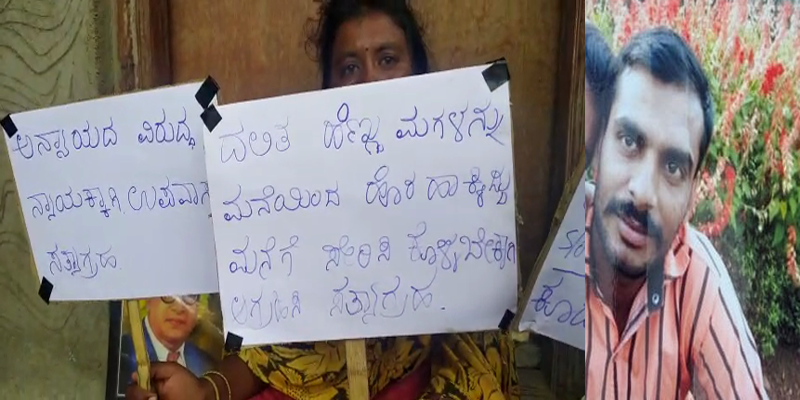 ಅನ್ಯಾಯದ ವಿರುದ್ಧ
ನ್ಯಾಯಕ್ಕಾಗಿ ಉಪವಾಸ
ಸತ್ಯಾಗ್ರಹ.
ದಲಿತ ಹೆಣ್ಣು ಮಗಳನ್ನು
ಮನೆಯಿಂದ ಹೊರ ಹಾಕಿದ್ದು
ಮನೆಗೆ ಸೇರಿಸಿ ಕೊಳ್ಳಬೇಕಾಗಿ
ಆಗ್ರಹಿಸಿ ಸತ್ಯಾಗ್ರಹ.